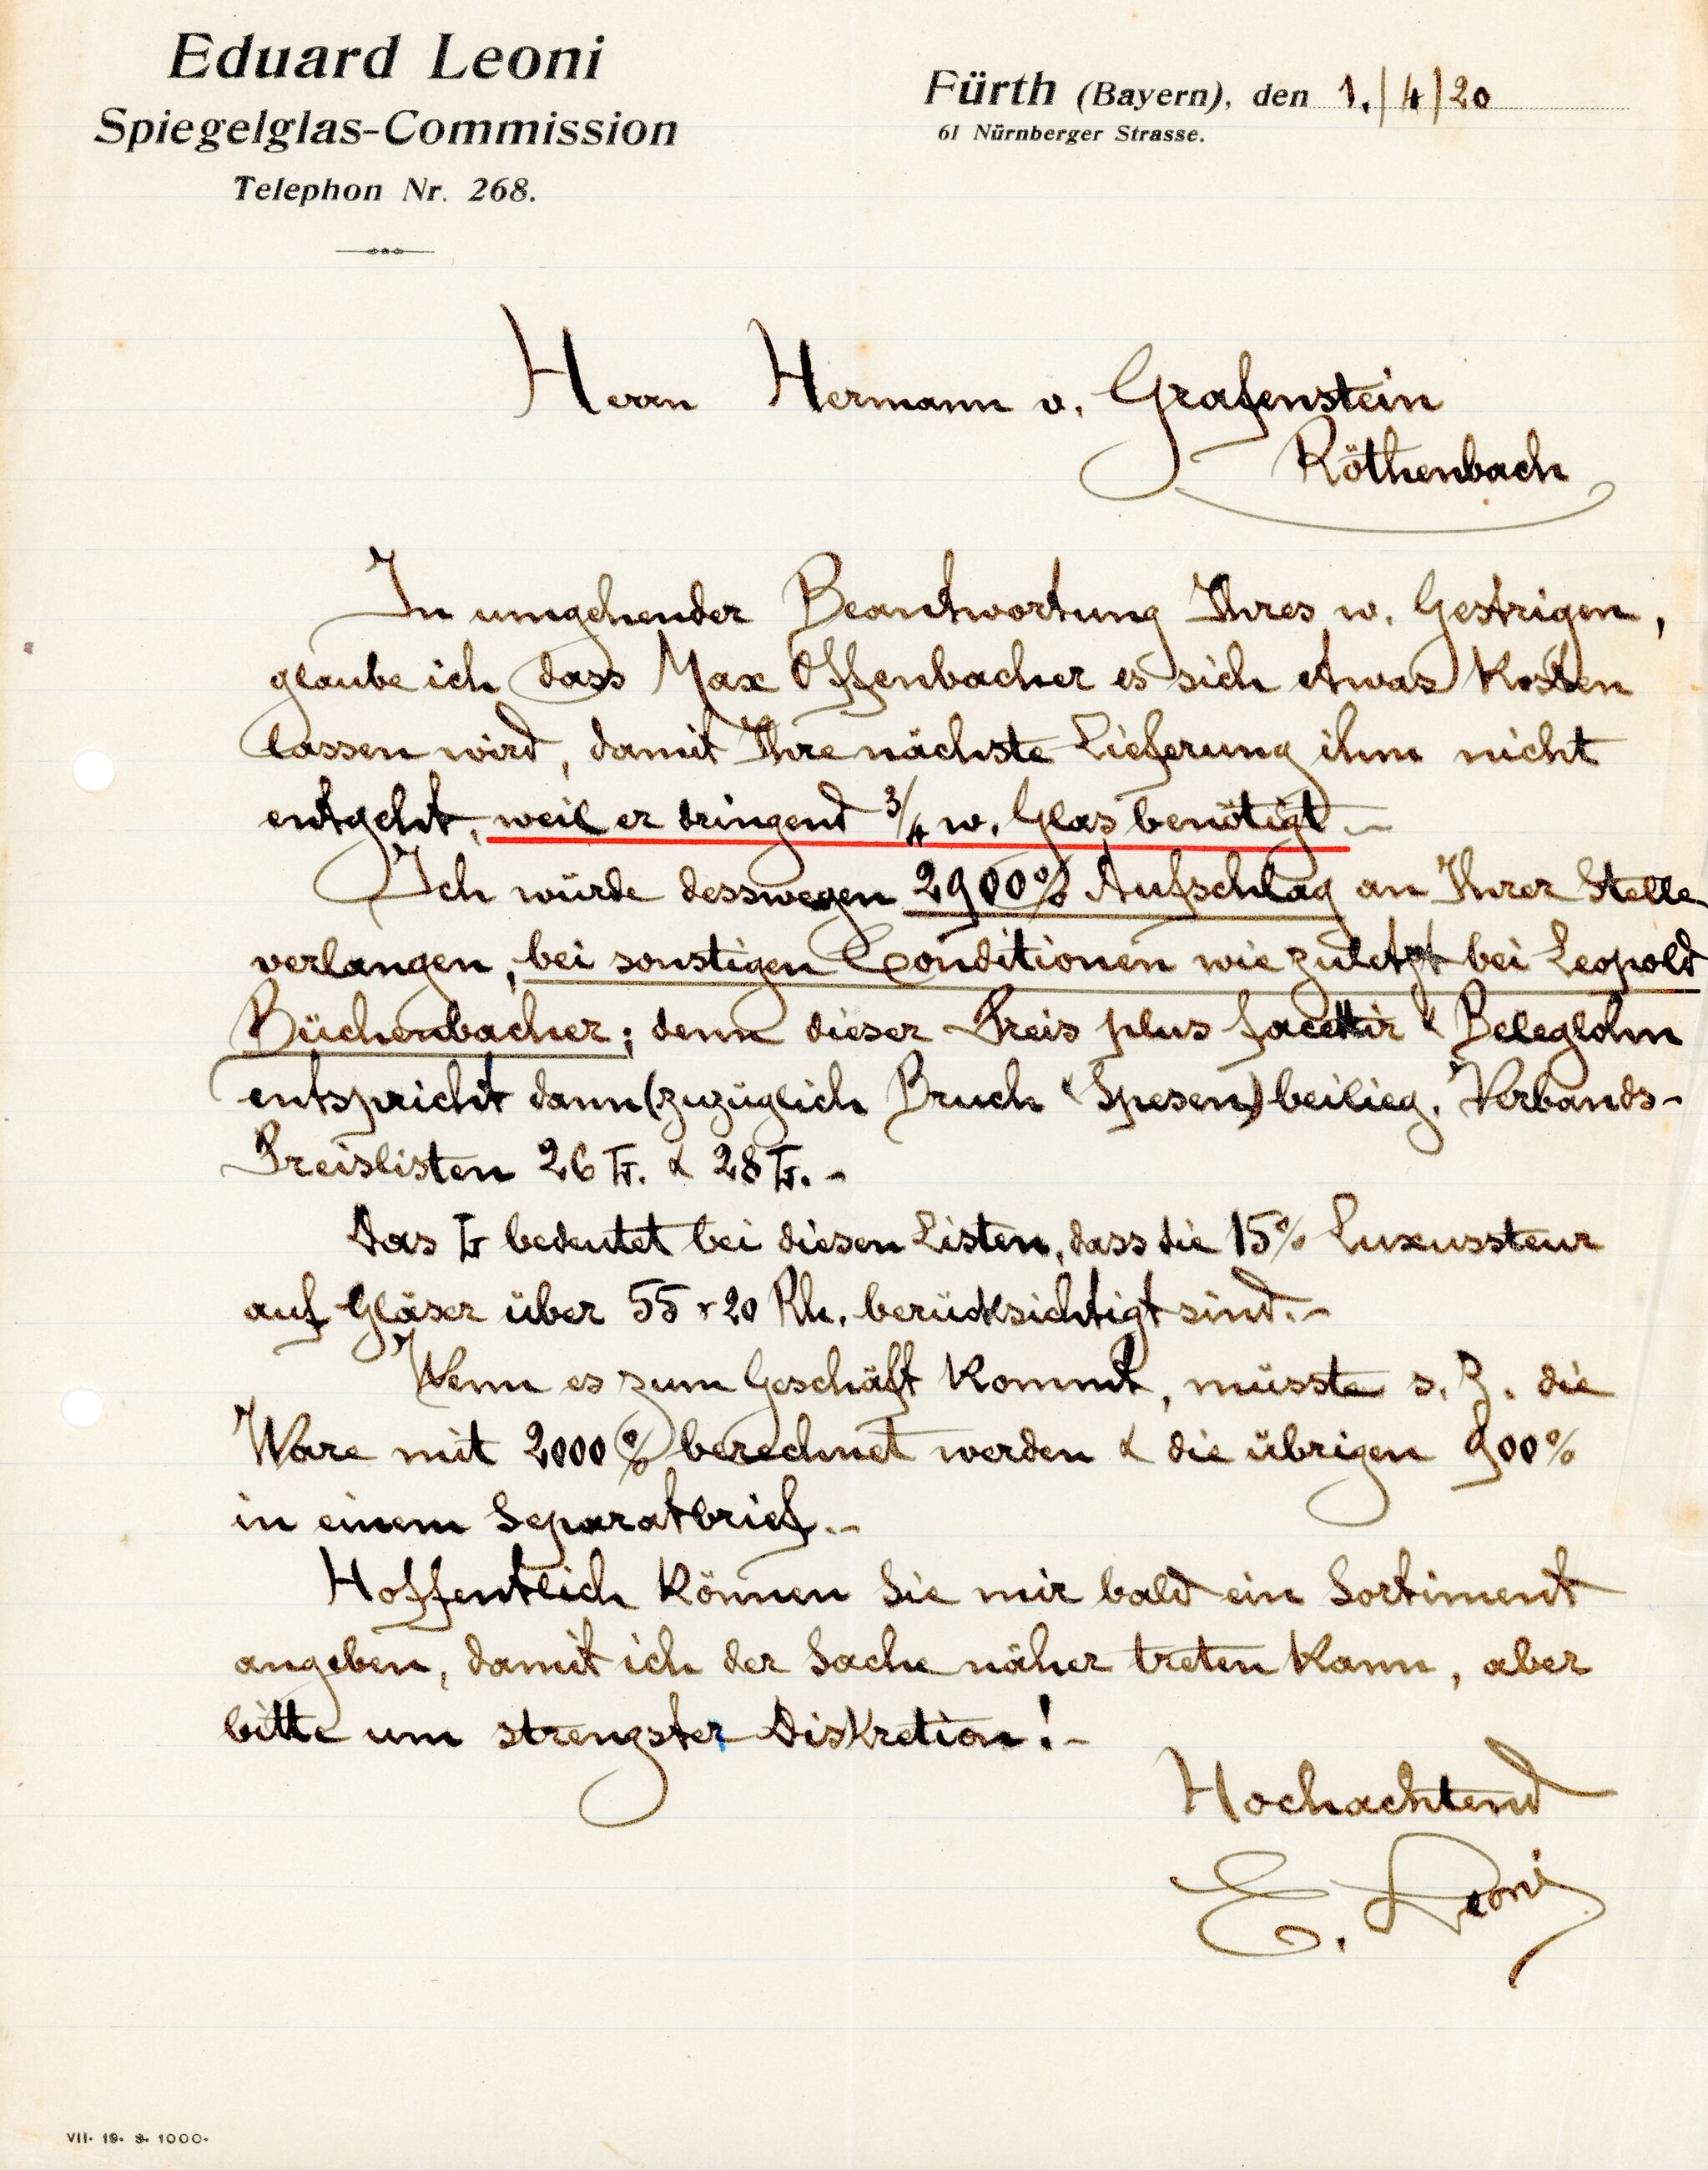 Eduard Leoni
Spiegelglas-Commission
Telephon Nr. 268.
Fürth (Bayern), den 1./4/20
61 Nürnberger Strasse.
Herrn Hermann v. Grafenstein
Röthenbach
In umgehender Beantwortung Ihres w. Gestrigen,
glaube ich dass Max Offenbacher es sich etwas Kosten
lassen wird, damit Ihre nächste Lieferung ihm nicht
entgeht, weil er dringend 3/4 w. Glas benötigt.-
Ich würde desswegen 2900% Aufschlag an Ihrer Stelle
verlangen, bei sonstigen Conditionen wie zuletzt bei Leopold
Büchenbacher; denn dieser Preis plus facettir & Beleglohn
entspricht dann (zuzüglich Bruch & Spesen) beilieg. Verbands-
Preislisten 26 Lt. & 28 Lt.-
Das Lt bedeutet bei diesen Listen, dass die 15% Luxussteur
auf Gläser über 55 x 20 Rh. berücksichtigt sind.-
Wenn es zum Geschäft Kommt, müsste s. Z. die
Ware mit 2000% berechnet werden & die übrigen 900%
in einem Separatbrief.-
Hoffentlich Können Sie mir bald ein Sortiment
angeben, damit ich der Sache näher treten Kann, aber
bitte um strengster Diskretion!-
Hochachtend
E. Leoni
VII. 19. 3. 1000.